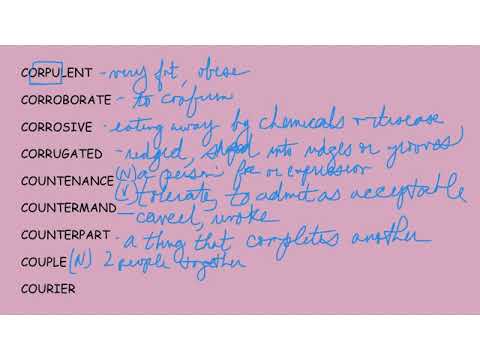 CORPULENT - very fat, obese
CORROBORATE - to confirm
CORROSIVE - eating away by chemicals or disease
CORRUGATED - ridged, shaped into ridges or grooves
COUNTENANCE (N) a person's face or expression
(V) tolerate, to admit as acceptable
COUNTERMAND - cancel, revoke
COUNTERPART - a thing that completes another
COUPLE (N) 2 people together
COURIER